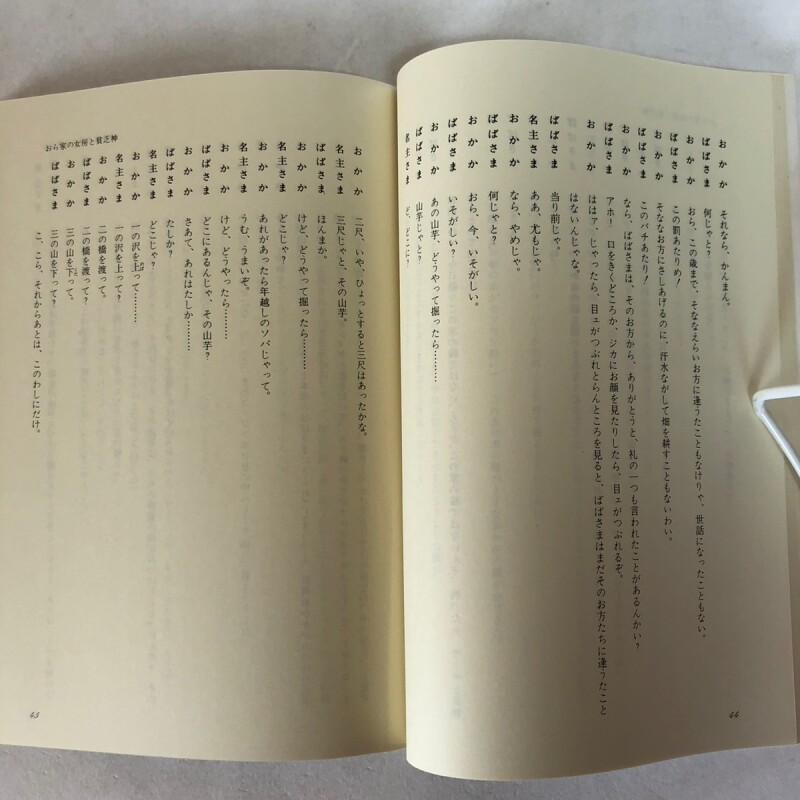 おかか　それなら、かんまん。
ばばさま　何じゃと?
おかか　おら、この歳まで、そななえらいお方に逢うたこともなけりゃ、世話になったこともない。
ばばさま　この罰あたりめ!
おかか　そななお方にさしあげるのに、汗水ながして畑を耕すこともないわい。
ばばさま　このバチあたり!
おかか　なら、ばばさまは、そのお方から、ありがとうと、礼の一つも言われたことがあるんかい?
ばばさま　アホ!　口をきくどころか、ジカにお顔を見たりしたら、目ェがつぶれるぞ。
おかか　ははァ、じゃったら、目ェがつぶれとらんところを見ると、ばばさまはまだそのお方たちに逢うたこと
はないんじゃな。
ばばさま　当り前じゃ。
名主さま　ああ、尤もじゃ。
おかか　なら、やめじゃ。
ばばさま　何じゃと?
おかか　おら、今、いそがしい。
ばばさま　いそがしい?
おかか　あの山芋、どうやって掘ったら………
ばばさま　山芋じゃと?
名主さま　ど、どこに?
44
おら家の女房と貧乏神
おかか　二尺、いや、ひょっとすると三尺はあったかな。
名主さま　三尺じゃと、その山芋。
ばばさま　ほんまか。
おかか　けど、どうやって掘ったら………
名主さま　どこじゃ?
おかか　あれがあったら年越しのソバじゃって。
名主さま　うむ、うまいぞ。
おかか　けど、どうやったら………
ばばさま　どこにあるんじゃ、その山芋?
おかか　さあて、あれはたしか………
ばばさま　たしか?
名主さま　どこじゃ?
おかか　一の沢を上って………
名主さま　一の沢を上って?
おかか　二の橋を渡って。
ばばさま　二の橋を渡って?
おかか　三の山を下って。
ばばさま　三の山を下って?
こ、こら、それからあとは、このわしにだけ。
45